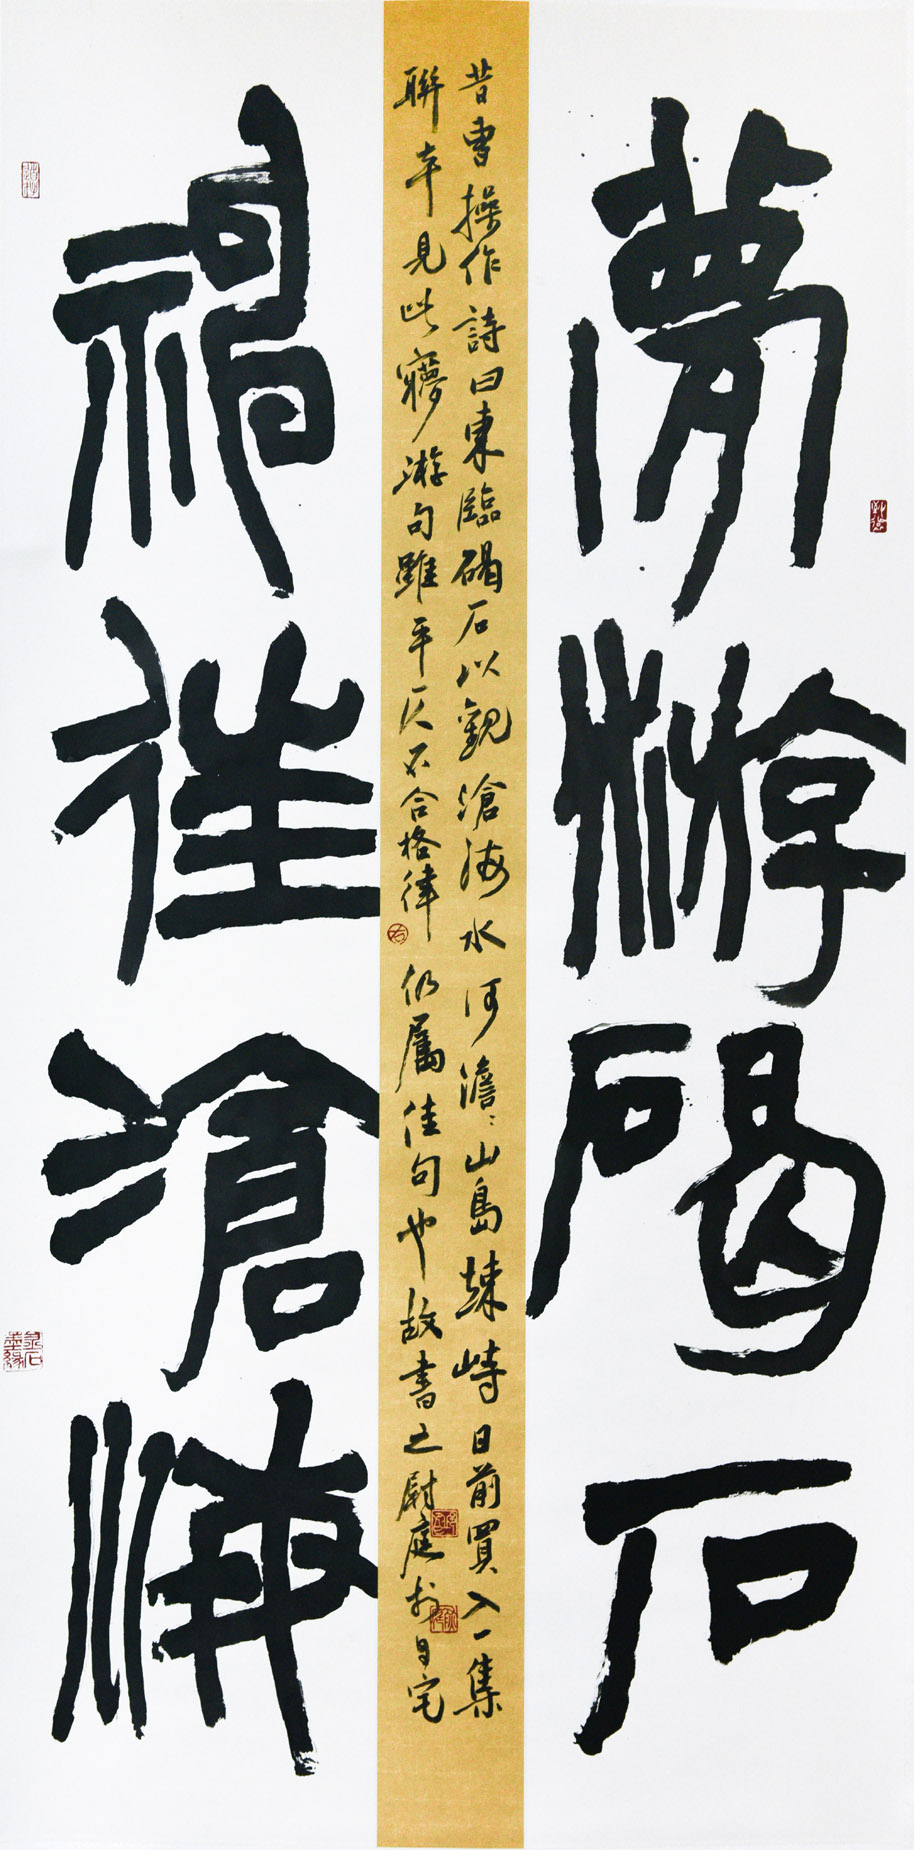 夢游碣石
昔曹操作詩曰東臨碣石以觀滄海水何澹〻山島竦峙日前買入一集
聯本見此㝱游句雖平仄不合格律仍屬佳句也故書之尉庭於自宅
神往滄海